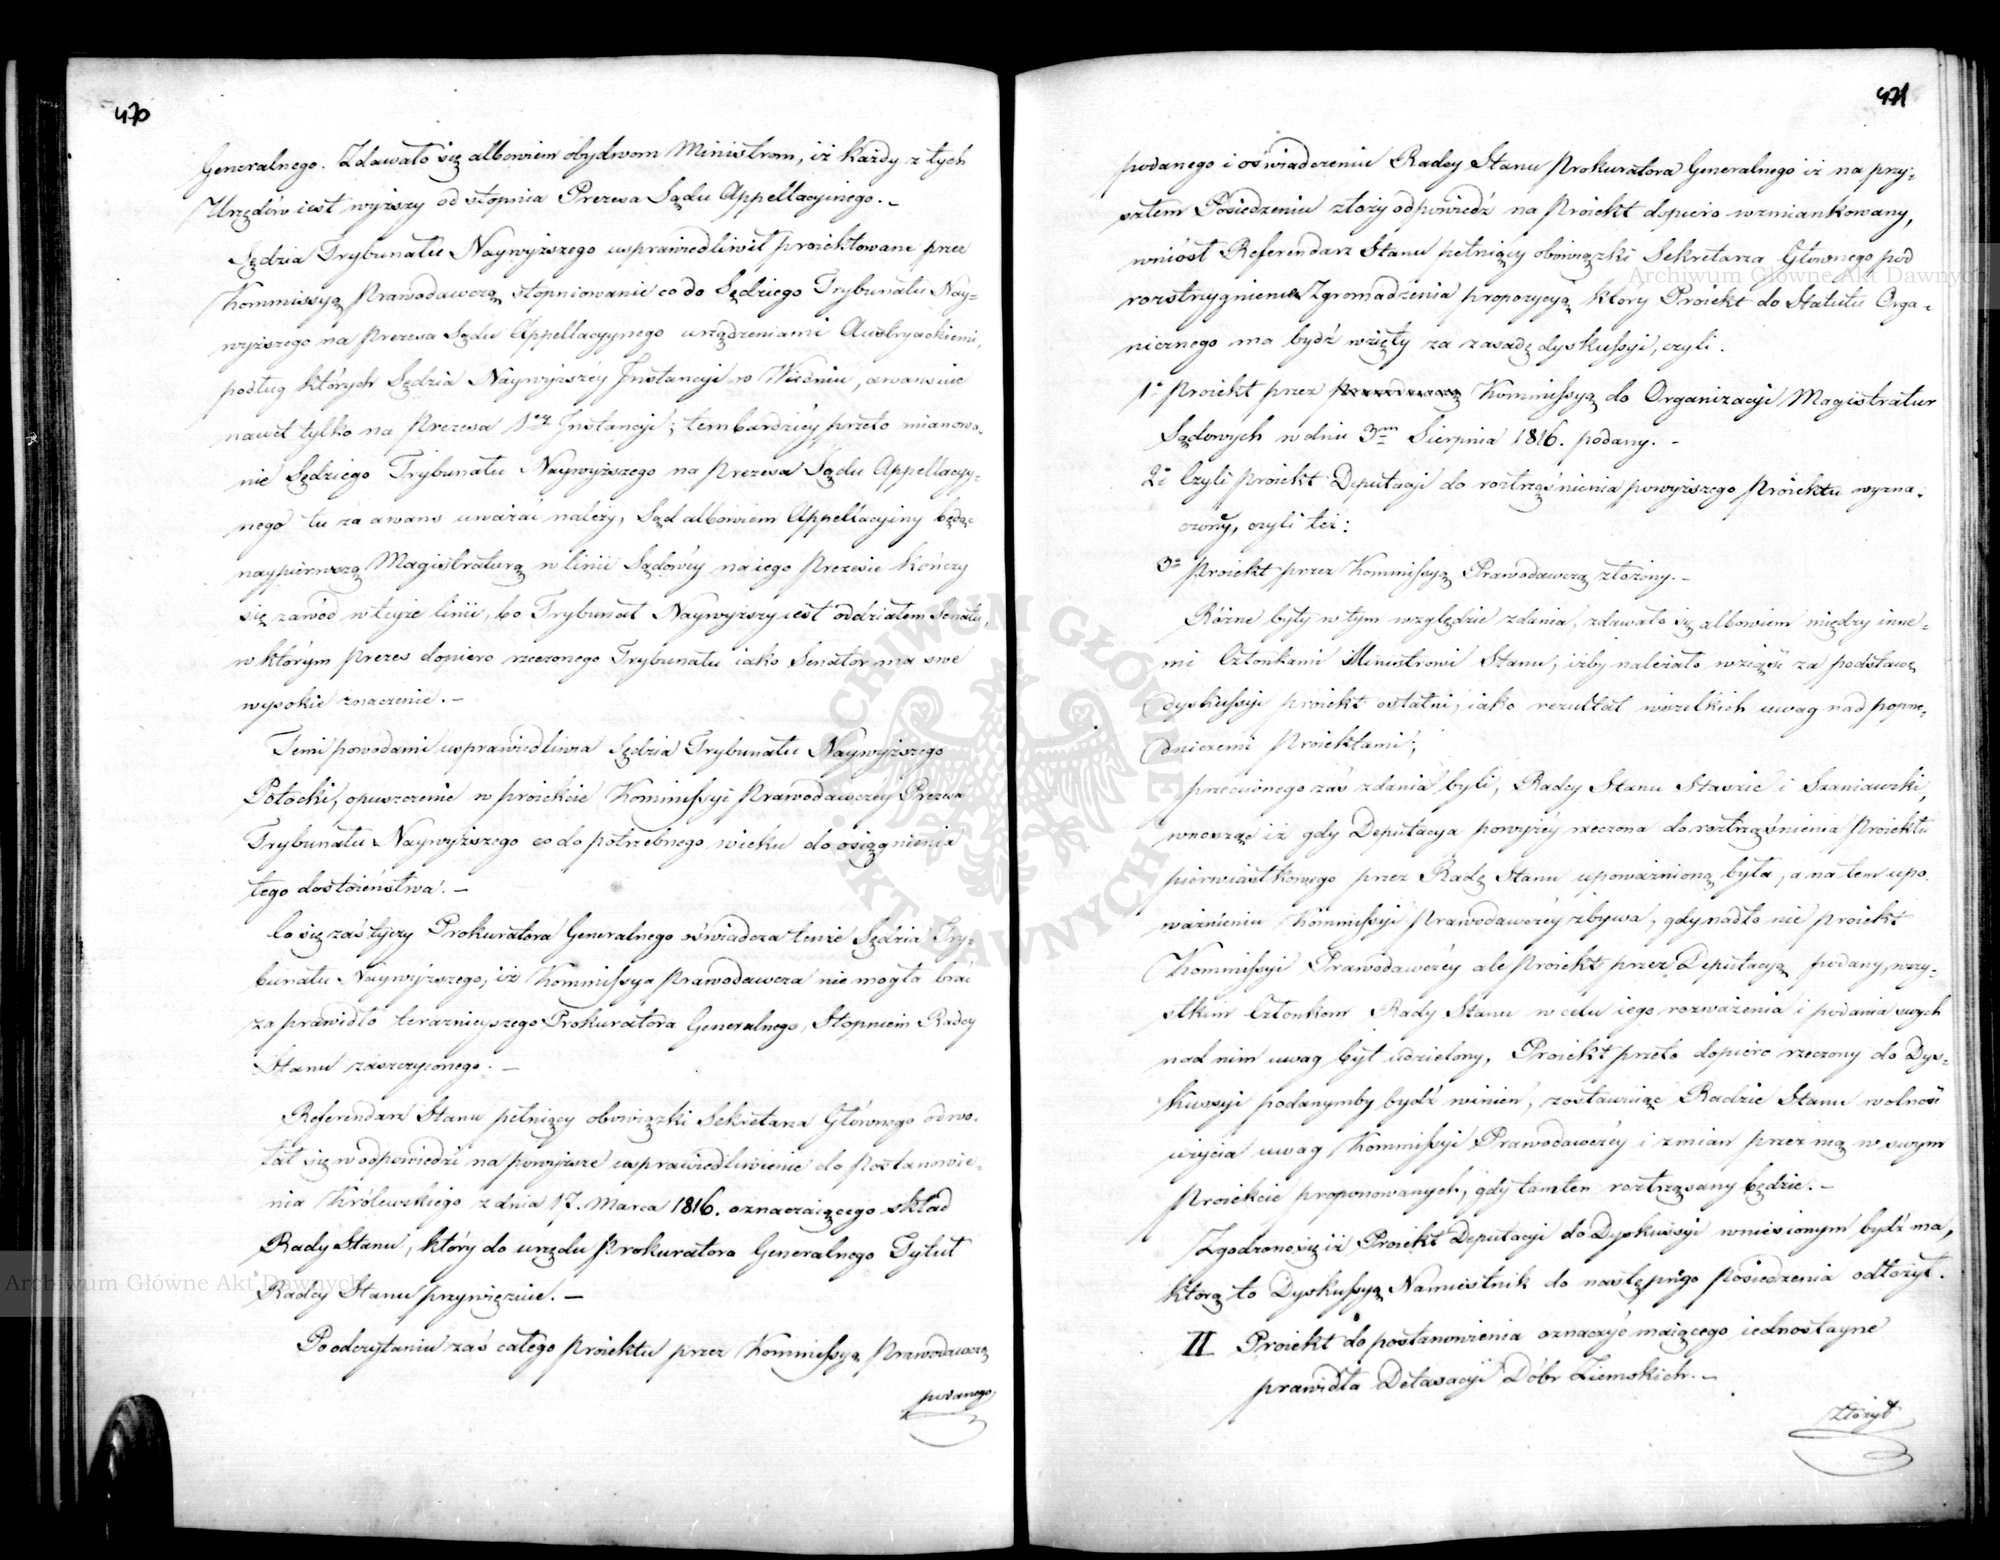 470
Generalnego. Zdawało się albowiem obydwom Ministrom, iż każdy z tych
Urzędów iest wyższy od stopnia Prezesa Sądu Appellacyinego. –
Sędzia Trybunału Naywyższego usprawiedliwił proiektowane przez
Kommissyą Prawodawczą stopniowanie co do Sędziego Trybunału Nay-
wyższego na Prezesa Sądu Appellacyynego urządzeniami Austryackiemi,
podług których Sędzia Naywyższéy Instancyi w Wiedniu, awansuie
nawet tylko na Prezesa 1éy Instancyi; tembardziéy przeto mianowa-
nie Sędziego Trybunału Naywyższego na Prezesa Sądu Appellacyy-
nego tu za awans uważać należy, Sąd albowiem Appellacyiny będąc
naypierwszą Magistraturą w linii Sądowéy na iego Prezesie kończy
się zawód w teyże linii, bo Trybunał Naywyższy iest oddziałem Senatu,
w którym Prezes dopiero rzeczonego Trybunału iako Senator ma swe
wysokie znaczenie. –
Temi powodami usprawiedliwia Sędzia Trybunału Naywyższego
Potocki, opuszczenie w proiekcie Kommissyi Prawodawczéy Prezesa
Trybunału Naywyższego co do potrzebnego wieku do osiągnienia
tego dostoieństwa. –
Co się zaś tyczy Prokuratora Generalnego oświadcza tenże Sędzia Try-
bunału Naywyższego, iż Kommissya Prawodawcza nie mogła brać
za prawidło teraznieyszego Prokuratora Generalnego, Stopniem Radcy
Stanu zaszczyconego. –
Referendarz Stanu pełniący obowiązki Sekretarza Głównego odwo-
łał się w odpowiedzi na powyższe usprawiedliwienie do Postanowie-
nia Królewskiego z dnia 17. Marca 1816. oznaczaiącego skład
Rady Stanu, który do urzędu Prokuratora Generalnego Tytuł
Radcy Stanu przywięzuie. –
Po odczytaniu zaś całego Proiektu przez Kommissyą Prawodawczą
podanego
471
podanego i oświadczeniu Radcy Stanu Prokuratora Generalnego iż na przy-
szłem Posiedzeniu złoży odpowiedź na Proiekt dopiero wzmiankowany,
wniósł Referendarz Stanu pełniący obowiązki Sekretarza Głównego pod
rozstrzygnienie Zgromadzenia propozycyą który Proiekt do Statutu Orga-
nicznego ma bydź wzięty za zasadę dyskussyi, czyli.
1° Proiekt przez Kommissyą do Organizacyi Magistratur
Sądowych w dniu 3m Sierpnia 1816. podany. –
2° Czyli Proiekt Deputacyi do roztrząśnienia powyższego Proiektu wyzna-
czony, czyli też:
3° Proiekt przez Kommissyą Prawodawczą złożony. –
Różne były w tym względzie zdania, zdawało się albowiem między inne-
mi Członkami Ministrowi Stanu, iżby należało wziąść za podstawę
dyskussyi proiekt ostatni, iako rezultat wszelkich uwag nad poprze-
dniczemi Proiektami;
przeciwnego zaś zdania byli, Radcy Stanu Staszic i Szaniawski,
wnosząc iż gdy Deputacya powyżéy rzeczona do roztrząśnienia Proiektu
pierwiastkowego przez Radę Stanu upoważnioną była, a na tem upo-
ważnieniu Kommissyi Prawodawczéy zbywa, gdy nadto nie proiekt
Kommissyi Prawodawczéy ale Proiekt przez Deputacyą podany, wszy-
stkim Członkom Rady Stanu w celu iego rozważenia i podania swych
nad nim uwag był udzielony, Proiekt przeto dopiero rzeczony do Dys-
kussyi podanymby bydź winien, zostawuiąc Radzie Stanu wolność
użycia uwag Kommissyi Prawodawczéy i zmian przez nią w swym
Proiekcie proponowanych, gdy tamten roztrząsany będzie. –
Zgodzono się iż Proiekt Deputacyi do Dyskussyi wniesionym bydź ma,
którą to Dyskussyą Namiestnik do następnego Posiedzenia odłożył.
II Proiekt do postanowienia oznaczyć maiącego iednostayne
prawidła Detaxacyi Dóbr Ziemskich. –
Złożył
Archiwum Główne Akt Dawnych
Archiwum Główne Akt Dawnych
ARCHIWUM GŁÓWNE AKT DAWNYCH